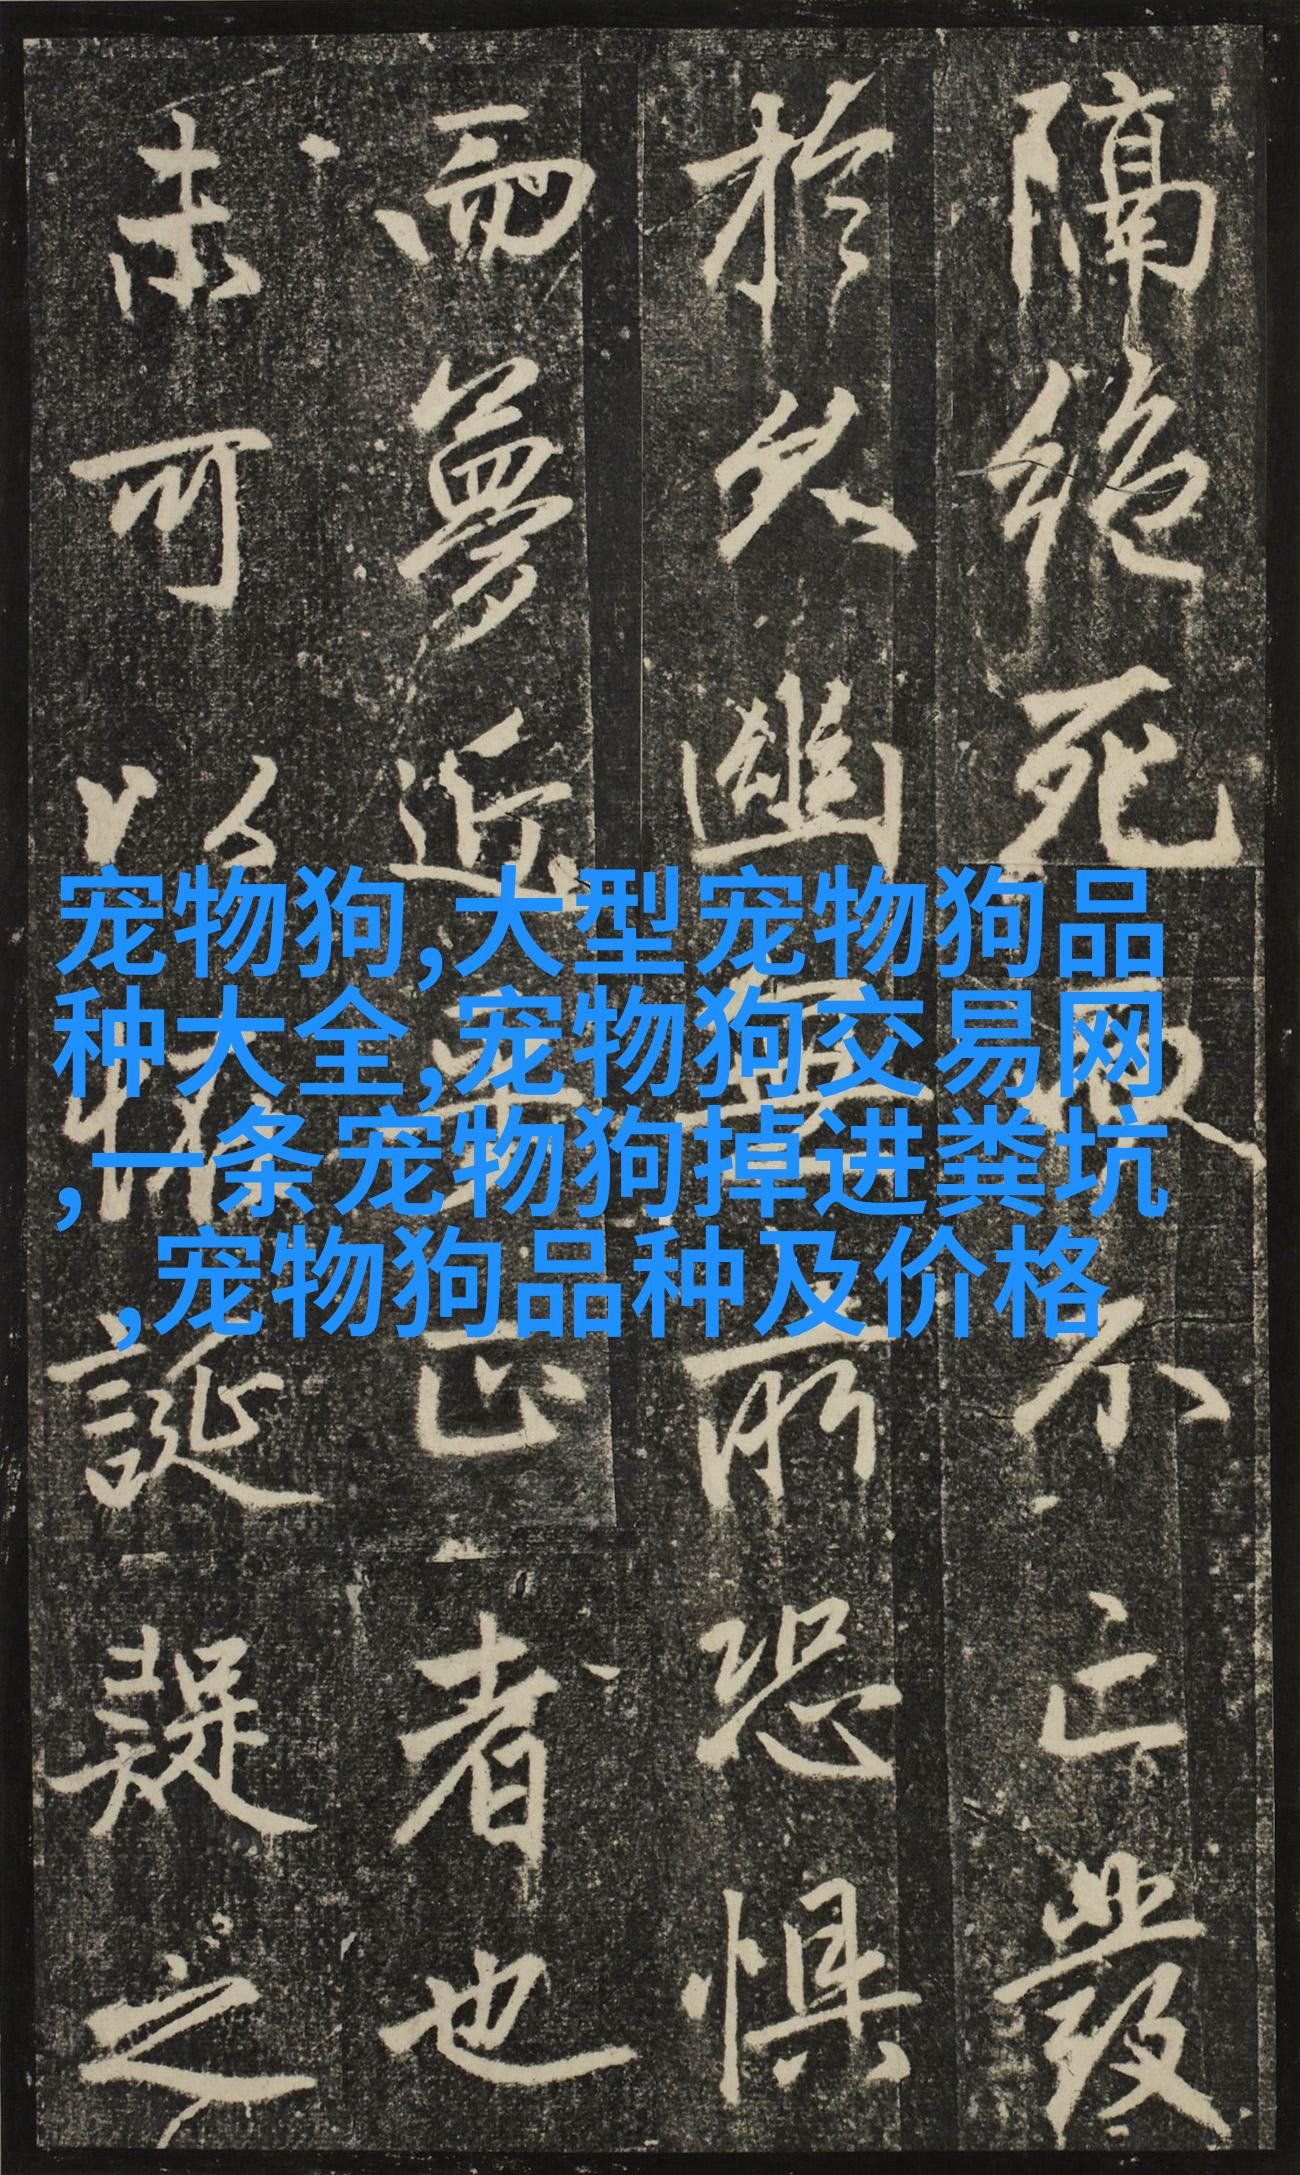 隔絶死不亡發
於久幽所恐懼
而夢近正者也
未可以怪誕疑之
宠物狗,大型宠物狗品
种大全,宠物狗交易网
,一条宠物狗掉进粪坑
,宠物狗品种及价格